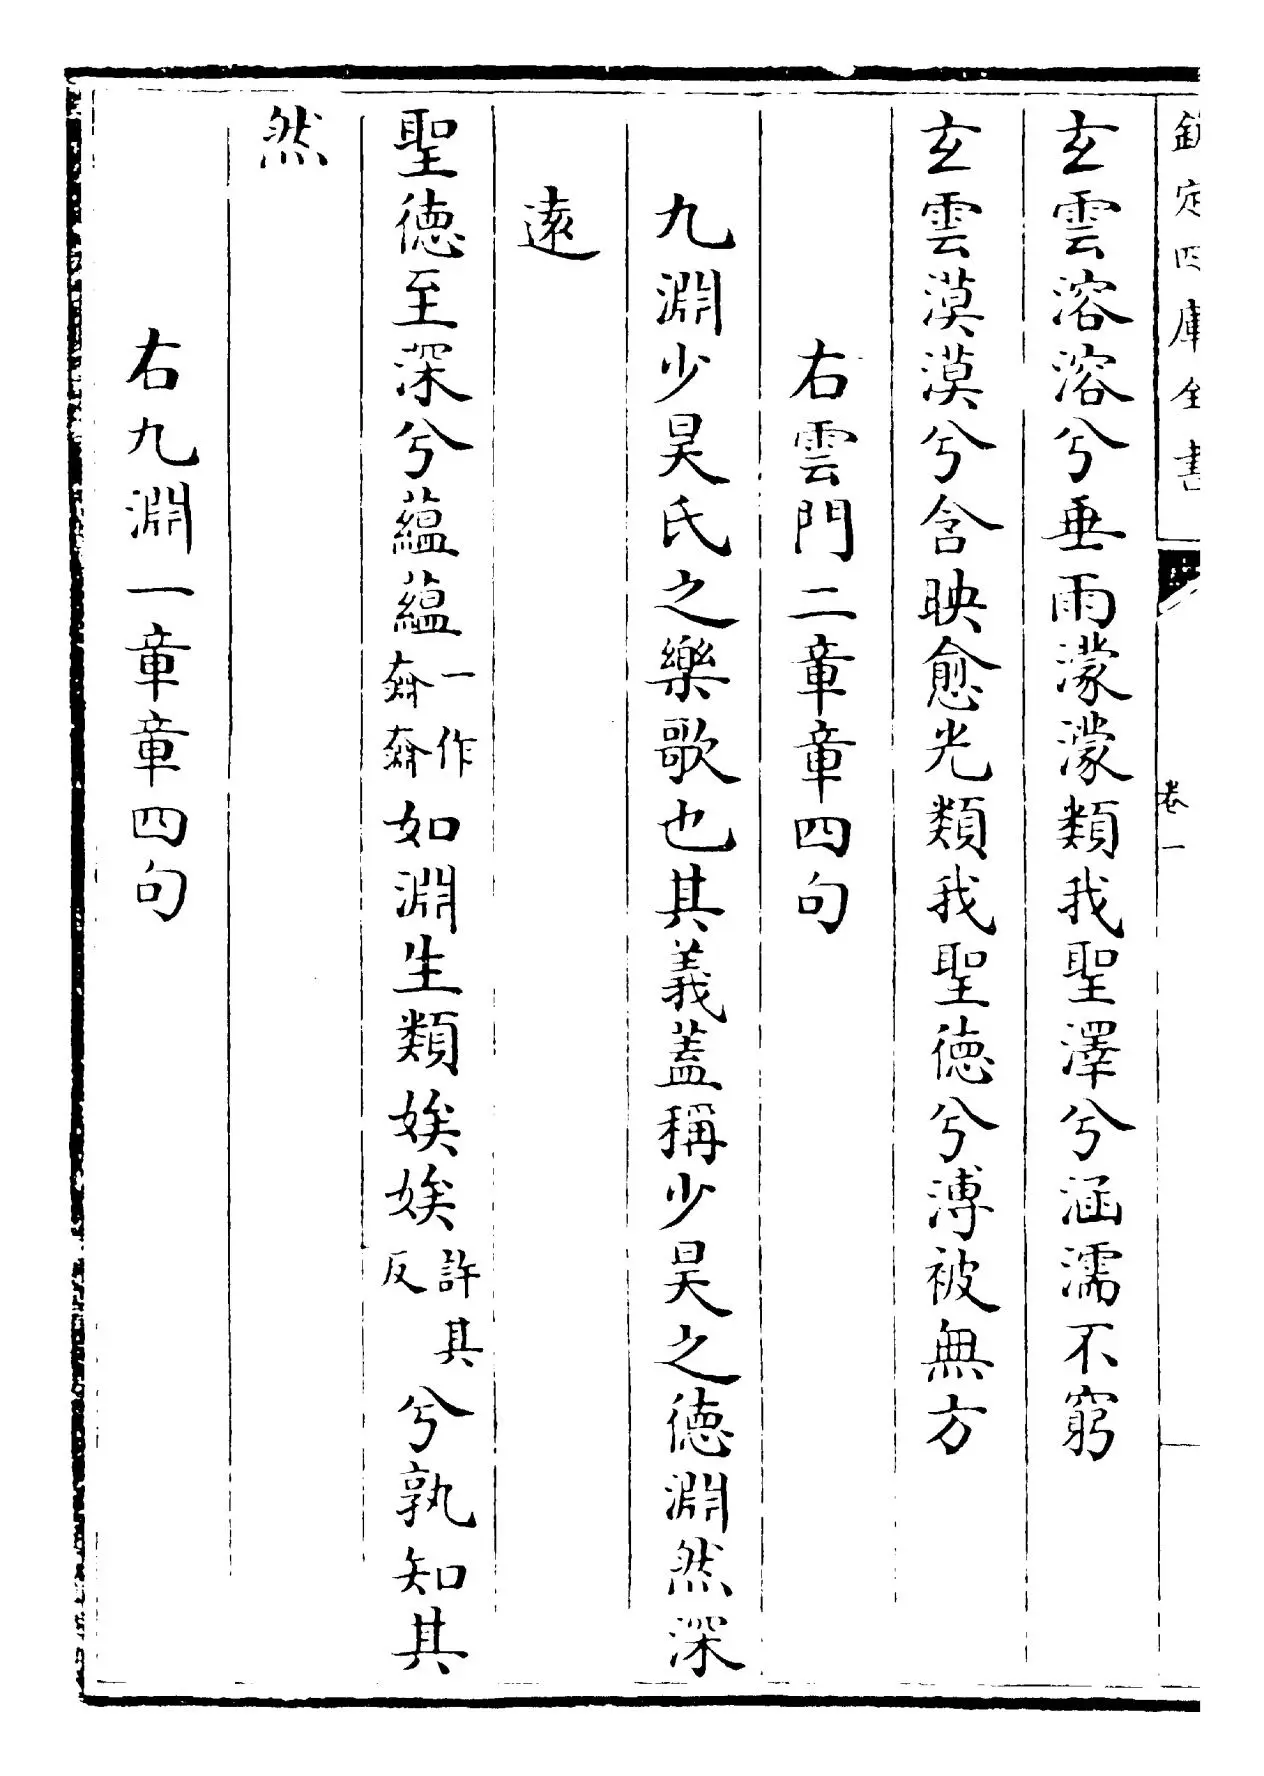 欽定四庫全書
卷一
玄雲溶溶兮垂雨濛濛類我聖澤兮涵濡不窮
玄雲漠漠兮含映愈光類我聖德兮溥被無方
右雲門二章章四句
九淵少昊氏之樂歌也其義蓋稱少昊之德淵然深
遠
聖德至深兮蘊蘊一作奫奫如淵生類娭娭許其反兮孰知其
然
右九淵一章章四句